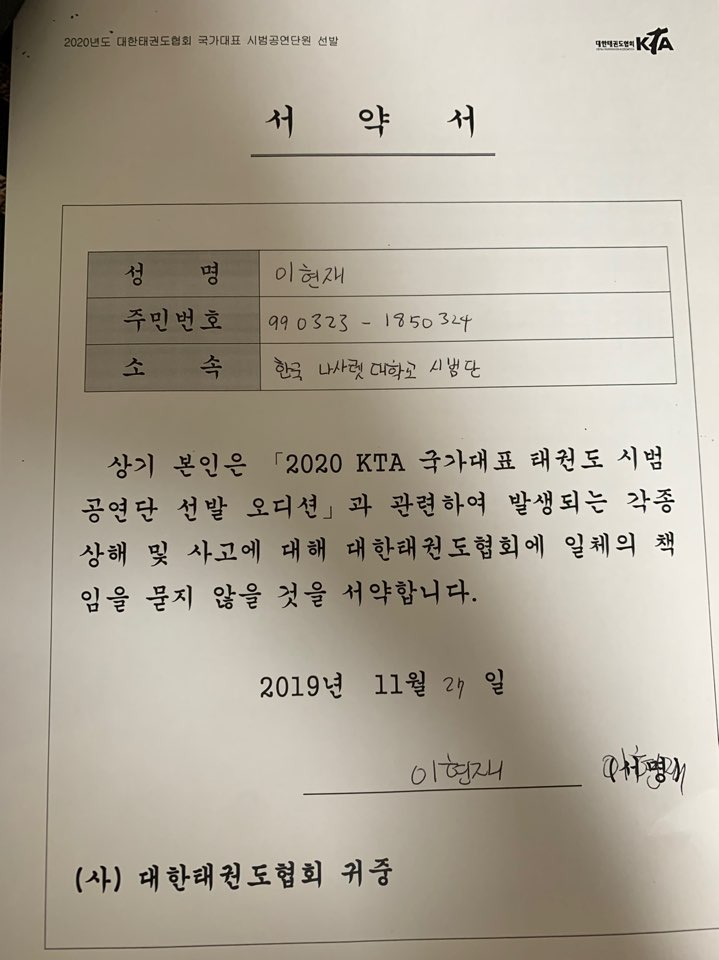 2020년도 대한태권도협회 국가대표 시범공연단원 선발
대한태권도협회 KTA
서 약 서
성 명 이현재
주민번호 990323 - 1850324
소 속 한국 나사렛 대학교 시범단
상기 본인은 「2020 KTA 국가대표 태권도 시범
공연단 선발 오디션」과 관련하여 발생되는 각종
상해 및 사고에 대해 대한태권도협회에 일체의 책
임을 묻지 않을 것을 서약합니다.
2019년 11월 27 일
이현재 (서명)
(사) 대한태권도협회 귀중